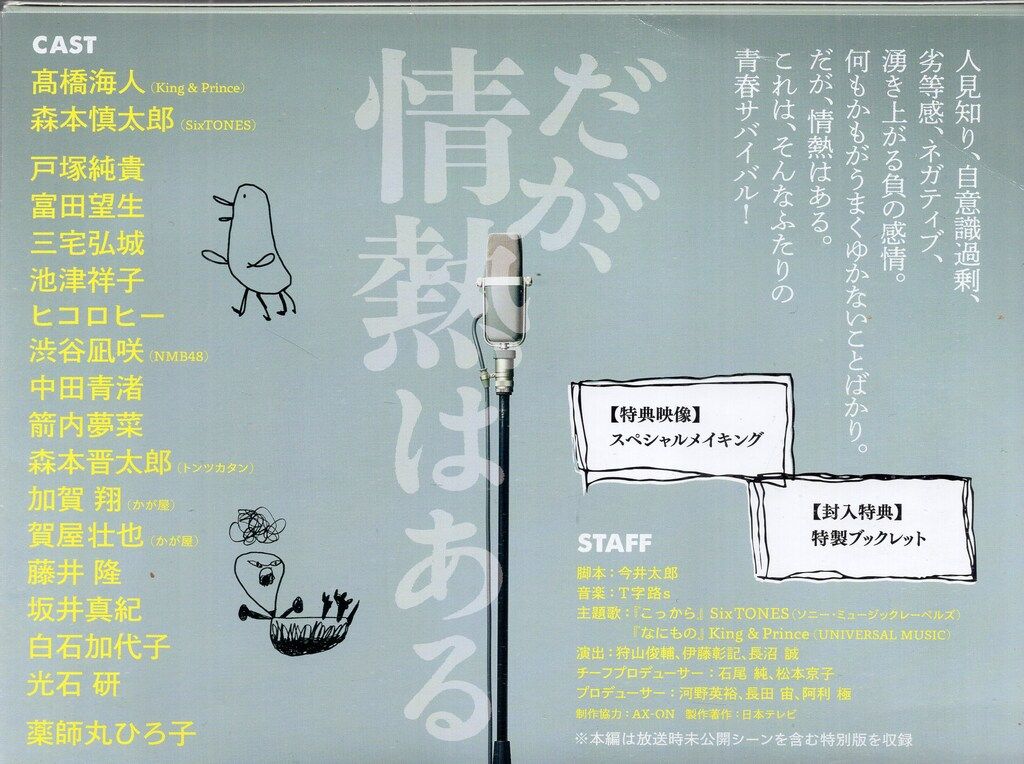 CAST
髙橋海人（King & Prince）
森本慎太郎（SixTONES）
戸塚純貴
富田望生
三宅弘城
池津祥子
ヒコロヒー
渋谷凪咲（NMB48）
中田青渚
箭内夢菜
森本晋太郎（トンツカタン）
加賀 翔（かが屋）
賀屋壮也（かが屋）
藤井 隆
坂井真紀
白石加代子
光石 研
薬師丸ひろ子
だが、
情熱はある
人見知り、自意識過剰、
劣等感、ネガティブ、
湧き上がる負の感情。
何もかもがうまくゆかないことばかり。
だが、情熱はある。
これは、そんなふたりの
青春サバイバル！
【特典映像】
スペシャルメイキング
【封入特典】
特製ブックレット
STAFF
脚本：今井太郎
音楽：T字路s
主題歌：『こっから』SixTONES（ソニー・ミュージックレーベルズ）
『なにもの』King & Prince（UNIVERSAL MUSIC）
演出：狩山俊輔、伊藤彰記、長沼 誠
チーフプロデューサー：石尾 純、松本京子
プロデューサー：河野英裕、長田 宙、阿利 極
制作協力：AX-ON 製作著作：日本テレビ
※本編は放送時未公開シーンを含む特別版を収録